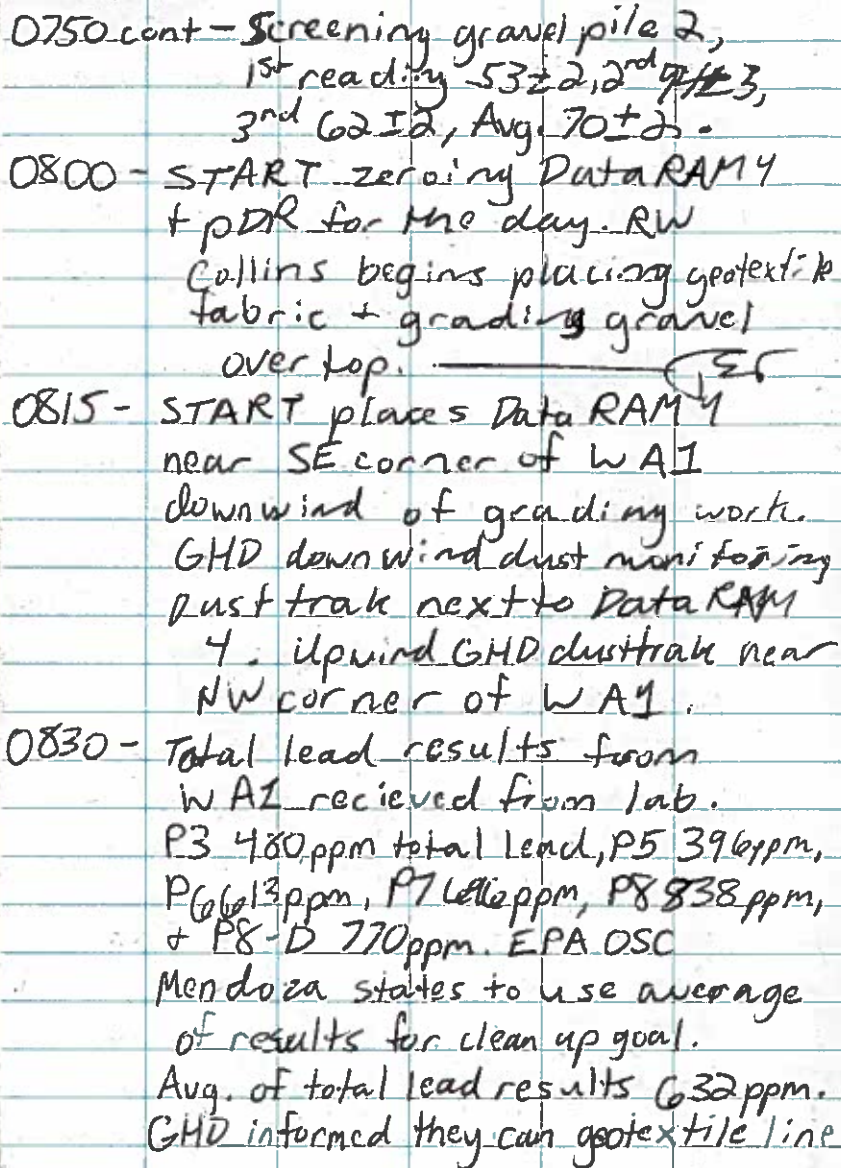 0750 cont - Screening gravel pile 2,
1st reading 53±2, 2nd ±3,
3rd 62±2, Avg. 70±2.
0800 - START zeroing DataRAM 4
+ pDR for the day. RW
Collins begins placing geotextile
fabric + grading gravel
over top.
0815 - START places DataRAM 4
near SE corner of WA1
downwind of grading work.
GHD downwind dust monitoring
Dust trak next to DataRAM
4. Upwind GHD dusttrak near
NW corner of WA1.
0830 - Total lead results from
WA1 recieved from lab.
P3 480ppm total lead, P5 396ppm,
P6 613ppm, P7 ppm, P8 838ppm,
+ P8-D 770ppm. EPA OSC
Mendoza states to use average
of results for clean up goal.
Avg. of total lead results 632ppm.
GHD informed they can geotextile line